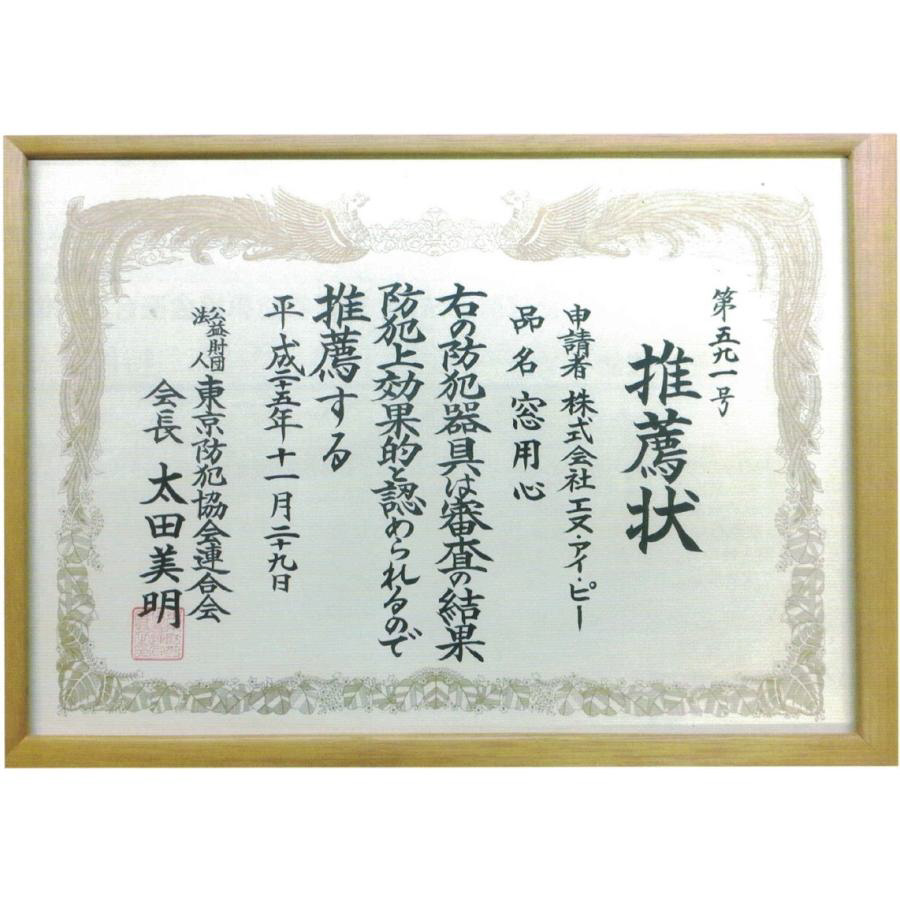 第五九一号
推薦状
申請者 株式会社エヌ・アイ・ピー
品名 窓用心
右の防犯器具は審査の結果
防犯上効果的と認められるので
推薦する
平成二十五年十一月二十九日
公益財団法人 東京防犯協会連合会
会長 太田美明